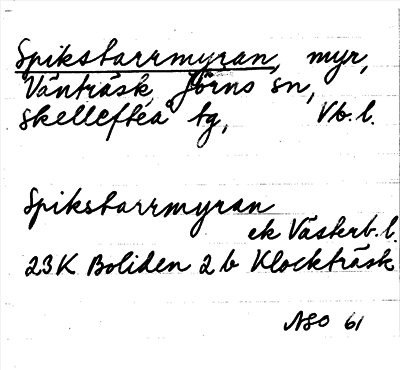 Spikstarrmyran, myr,
Vänträsk, Jörns sn,
Skellefteå tg, Vb. l.
Spikstarrmyran
ek Västerb. l.
23K Boliden 2b Klockträsk
NSO 61